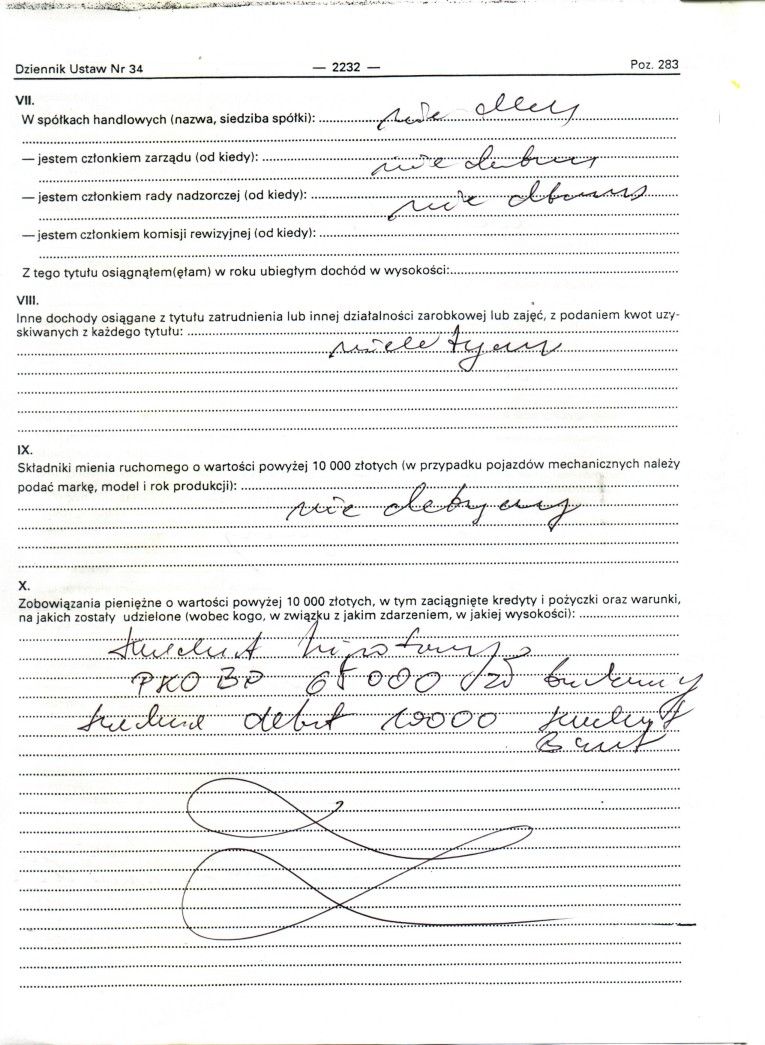 Dziennik Ustaw Nr 34 — 2232 — Poz. 283
VII.
W spółkach handlowych (nazwa, siedziba spółki): nie
— jestem członkiem zarządu (od kiedy): nie
— jestem członkiem rady nadzorczej (od kiedy): nie
— jestem członkiem komisji rewizyjnej (od kiedy):
Z tego tytułu osiągnąłem(ęłam) w roku ubiegłym dochód w wysokości:
VIII.
Inne dochody osiągane z tytułu zatrudnienia lub innej działalności zarobkowej lub zajęć, z podaniem kwot uzy-
skiwanych z każdego tytułu:
IX.
Składniki mienia ruchomego o wartości powyżej 10 000 złotych (w przypadku pojazdów mechanicznych należy
podać markę, model i rok produkcji):
nie
X.
Zobowiązania pieniężne o wartości powyżej 10 000 złotych, w tym zaciągnięte kredyty i pożyczki oraz warunki,
na jakich zostały udzielone (wobec kogo, w związku z jakim zdarzeniem, w jakiej wysokości):
PKO BP
debit